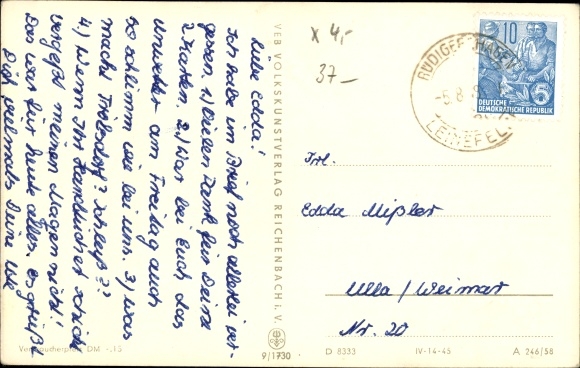 Liebe Edda!
Ich habe im Brief noch allerlei ver-
gessen. 1.) Vielen Dank für Deine
2 Karten. 2.) War bei Euch das
Unwetter am Freitag auch
so schlimm wie bei uns. 3.) Was
macht
4.) Wenn Ihr Handtücher schickt
vergeßt meinen Magen nicht!
Das war für heute alles. es grüßt
Dich vielmals Deine
Verbraucherpreis DM -,15
VEB VOLKSKUNSTVERLAG REICHENBACH i. V.
9/1730
x 4,-
37,-
10
DEUTSCHE
DEMOKRATISCHE REPUBLIK
5
RÜDIGERSHAGEN
-5.8.
LEINEFELDE
Frl.
Edda Mißler
Ulla / Weimar
Nr. 20
D 8333
IV-14-45
A 246/58